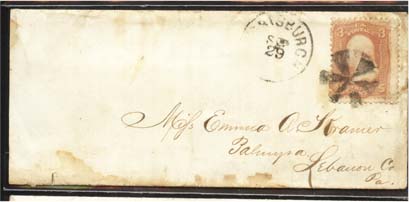 RISBURG
SEP
29
3 3
U S
Miss Emma A. Kramer
Palmyra
Lebanon Co
Pa.